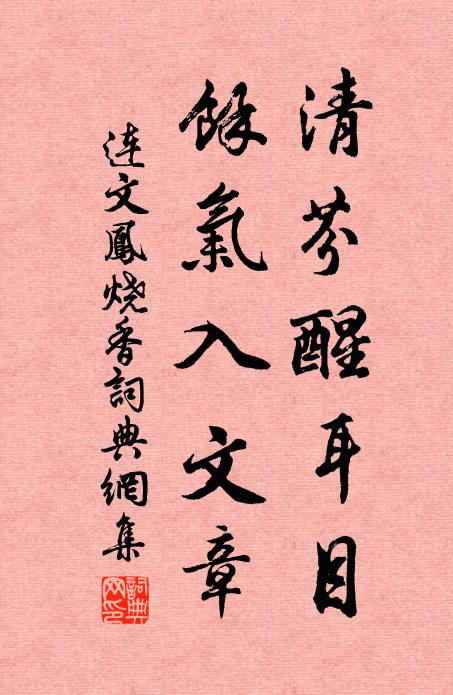 清芬醒耳目
餘氣入文章
連文鳳烧香詞典網集
詞典网印